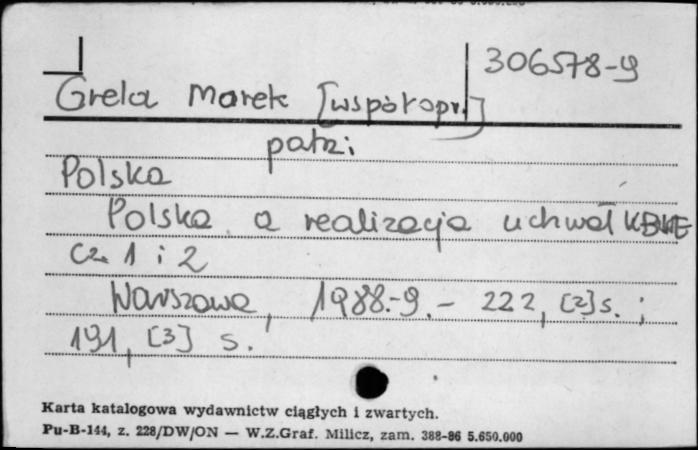 306578-9
Grela Marek [współopr.]
patrz:
Polska
Polska a realizacja uchwał KBWE
Cz. 1 i 2
Warszawa, 1988.-9. - 222, [2] s. ;
191, [3] s.
Karta katalogowa wydawnictw ciągłych i zwartych.
Pu-B-144, z. 228/DW/ON — W.Z.Graf. Milicz, zam. 388-86 5.650.000